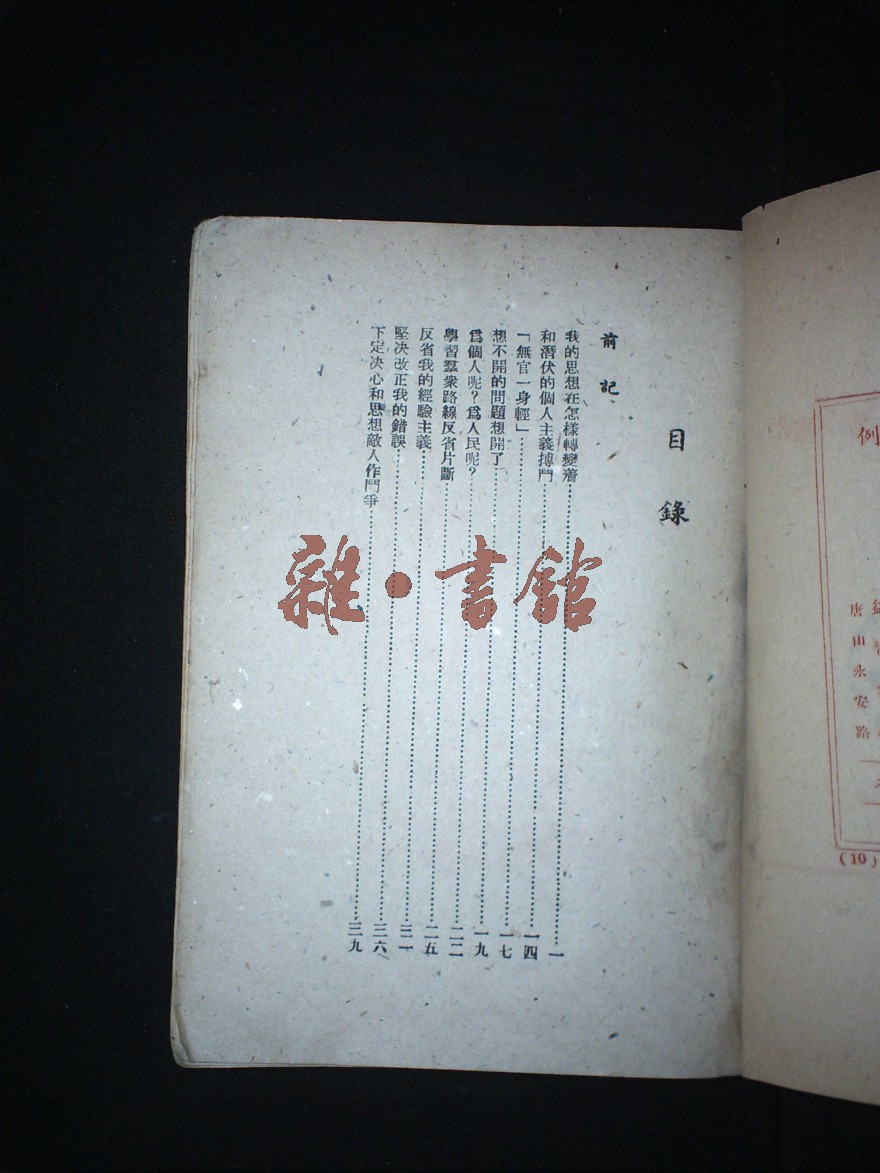 例
唐山永安路
(10)
目錄
前記
我的思想在怎樣轉變着…………一
和潛伏的個人主義搏鬥…………一四
「無官一身輕」…………一七
想不開的問題想開了…………一九
爲個人呢?爲人民呢?…………二二
學習羣衆路線反省片斷…………二五
反省我的經驗主義…………三一
堅决改正我的錯誤…………三六
下定决心和思想敵人作鬥爭…………三九
雜·書館